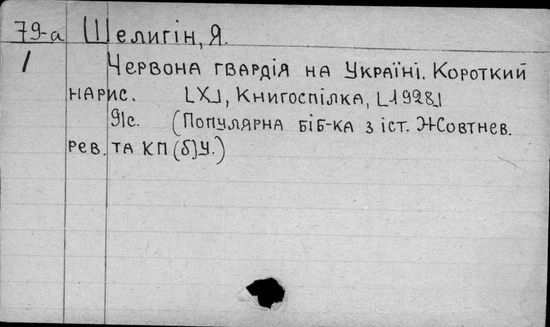 79-а Шелигін, Я.
1 Червона гвардія на Україні. Короткий
нарис. [Х], Книгоспілка, [1928]
91с. (Популярна біб-ка з іст. Жовтнев.
рев. та КП(б)У.)